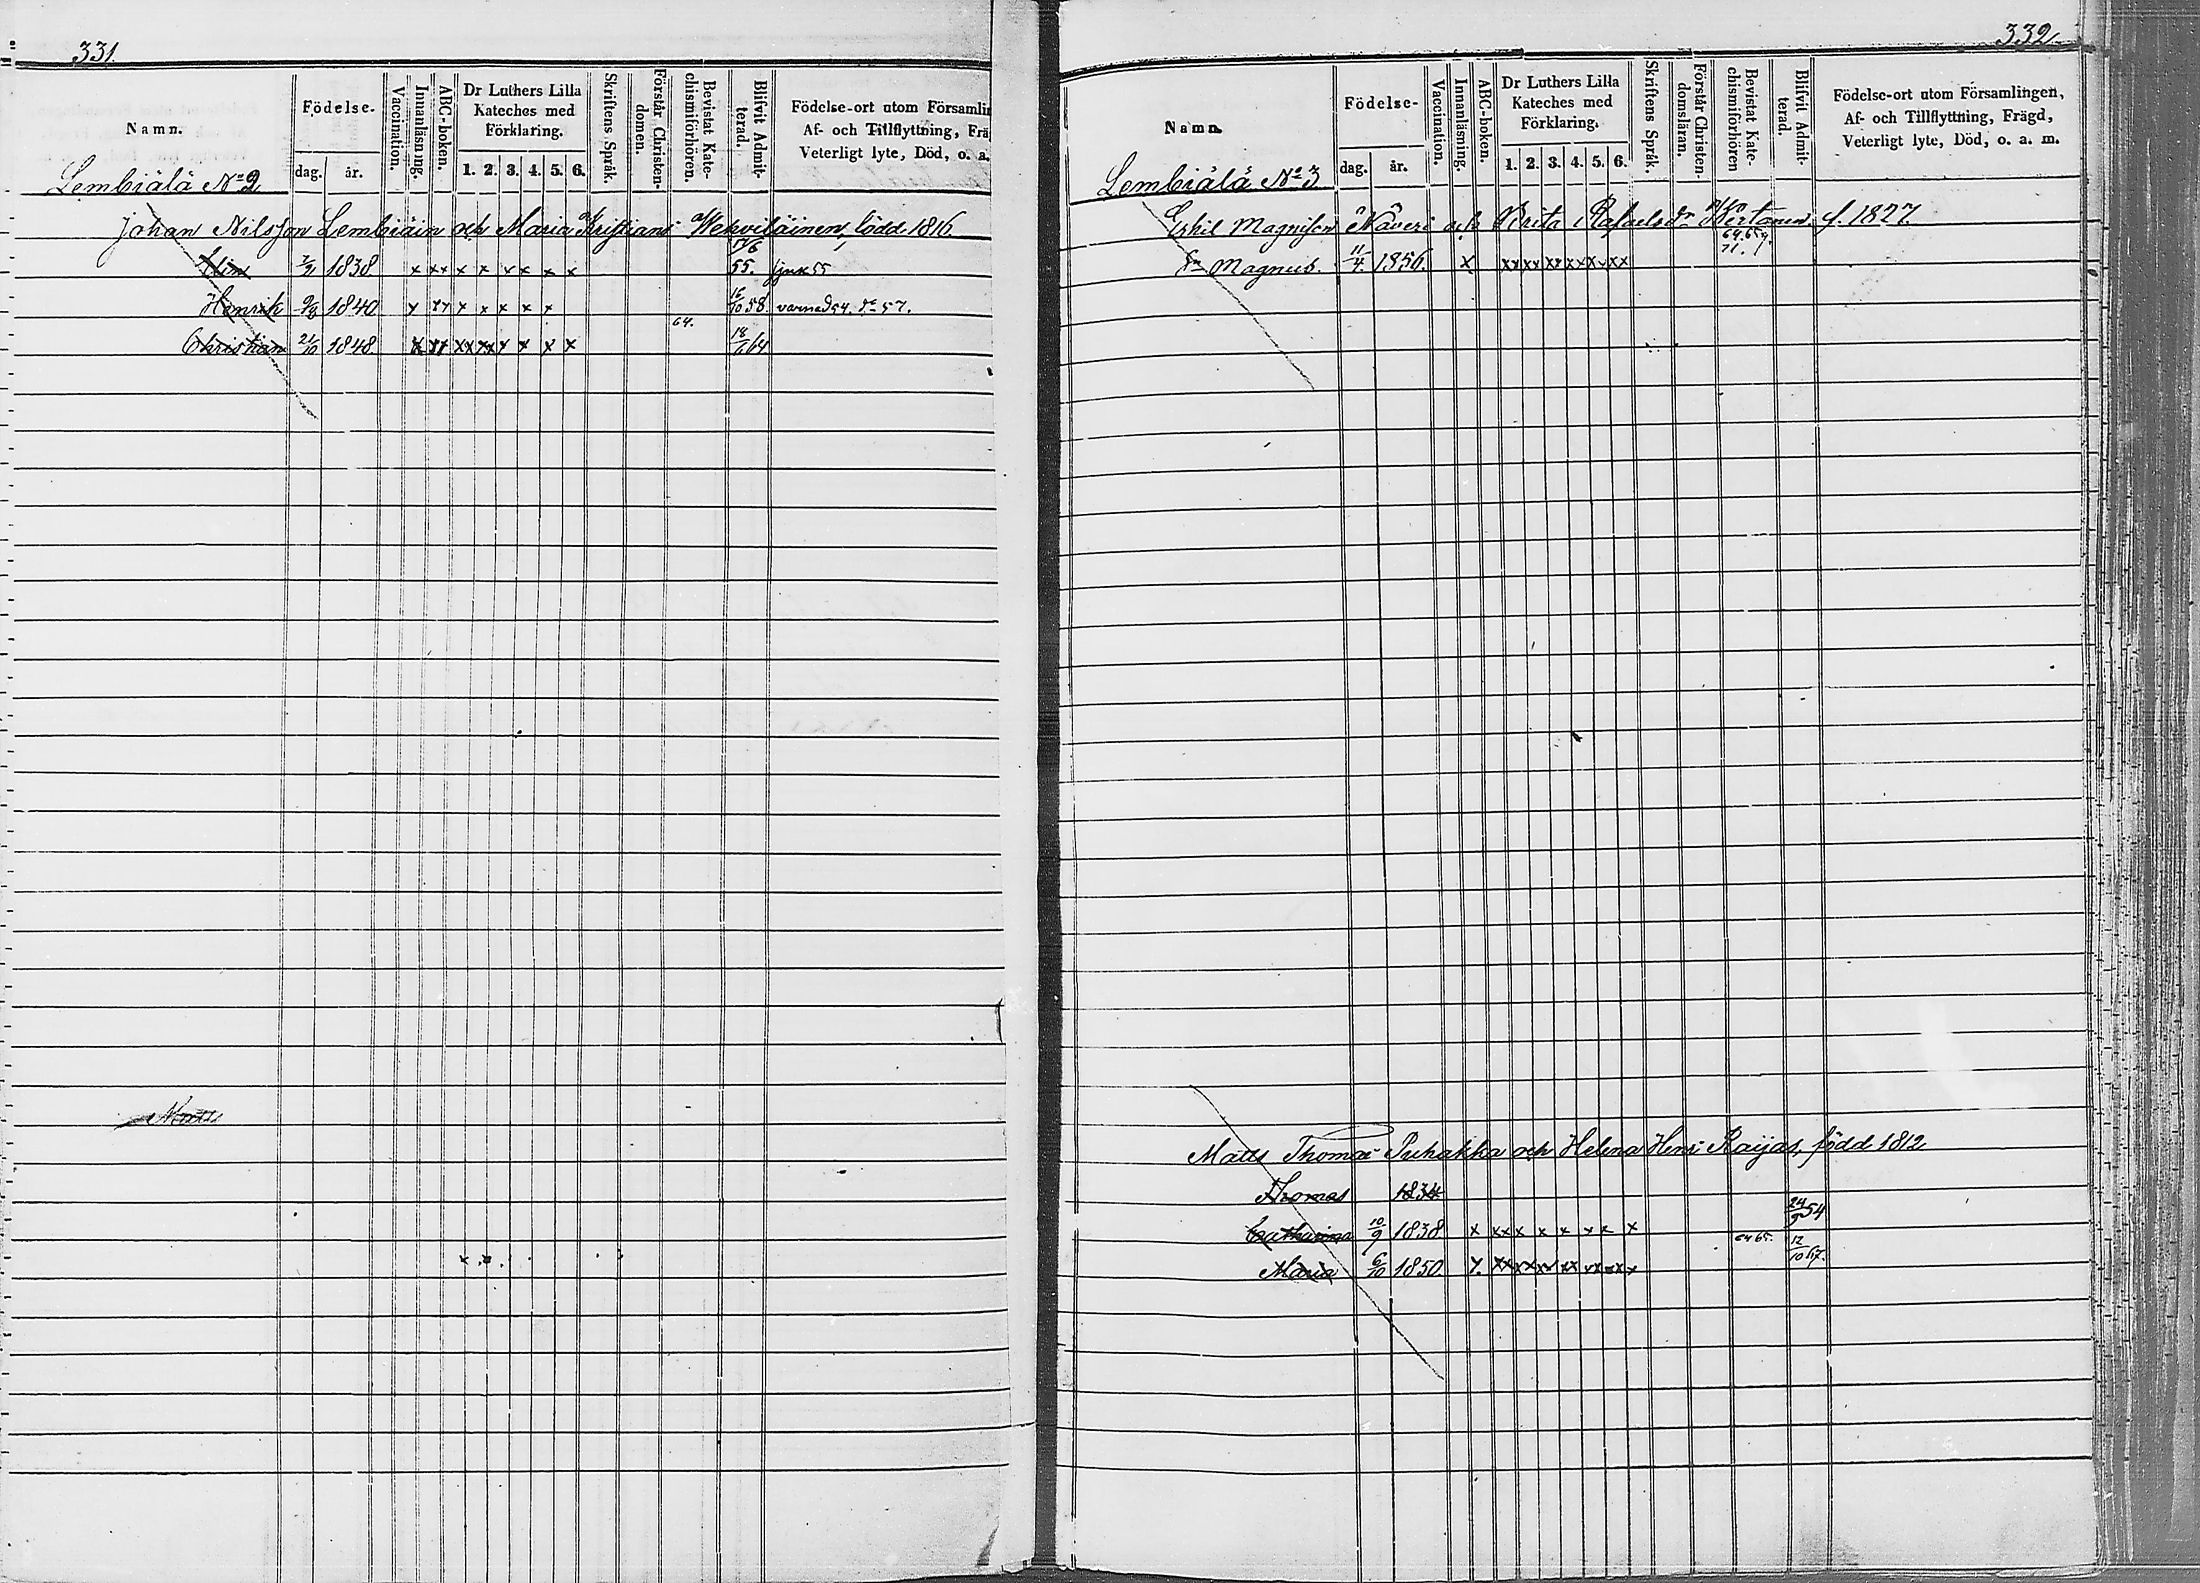 331.
Namn.
Födelse-
dag.
år.
Vaccination.
Innanläsning.
ABC-boken.
Dr Luthers Lilla
Kateches med
Förklaring.
1. 2. 3. 4. 5. 6.
Skriftens Språk.
Förstår Christen-
domen.
Bevistat Kate-
chismiförhören.
Blifvit Admit-
terad.
Födelse-ort utom Församlin
Af- och Tillflyttning, Fräg
Veterligt lyte, Död, o. a.
Lembiälä No 2
Johan Nilsson Lembiäin och Maria Kristians Wekviläinen, född 1816
1838 x xx x x x x x x 55.
Henrik 1840 58. varnad 54. do 57.
Christian 21/10 1848 64. 18/6 64
Matts
332
Namn.
Födelse-
dag.
år.
Vaccination.
Innanläsning.
ABC-boken.
Dr Luthers Lilla
Kateches med
Förklaring.
1. 2. 3. 4. 5. 6.
Skriftens Språk.
Förstår Christen-
domsläran.
Bevistat Kate-
chismiförhören
Blifvit Admit-
terad.
Födelse-ort utom Församlingen,
Af- och Tillflyttning, Frägd,
Veterligt lyte, Död, o. a. m.
Lembiälä No 3
Eskil Magnisson Näveri och Brita Rafaelsdr f. 1827
Sn Magnus. 11/4 1856. x xx xx xx xx xx xx 71.
Matts Thomas Puhakka och Helena Henr Raijas, född 1812
Thomas 1834
Catharina 10/9 1838 x xx x x x x x x 24/9 54
Maria 6/10 1850 64 65. 12/10 67.